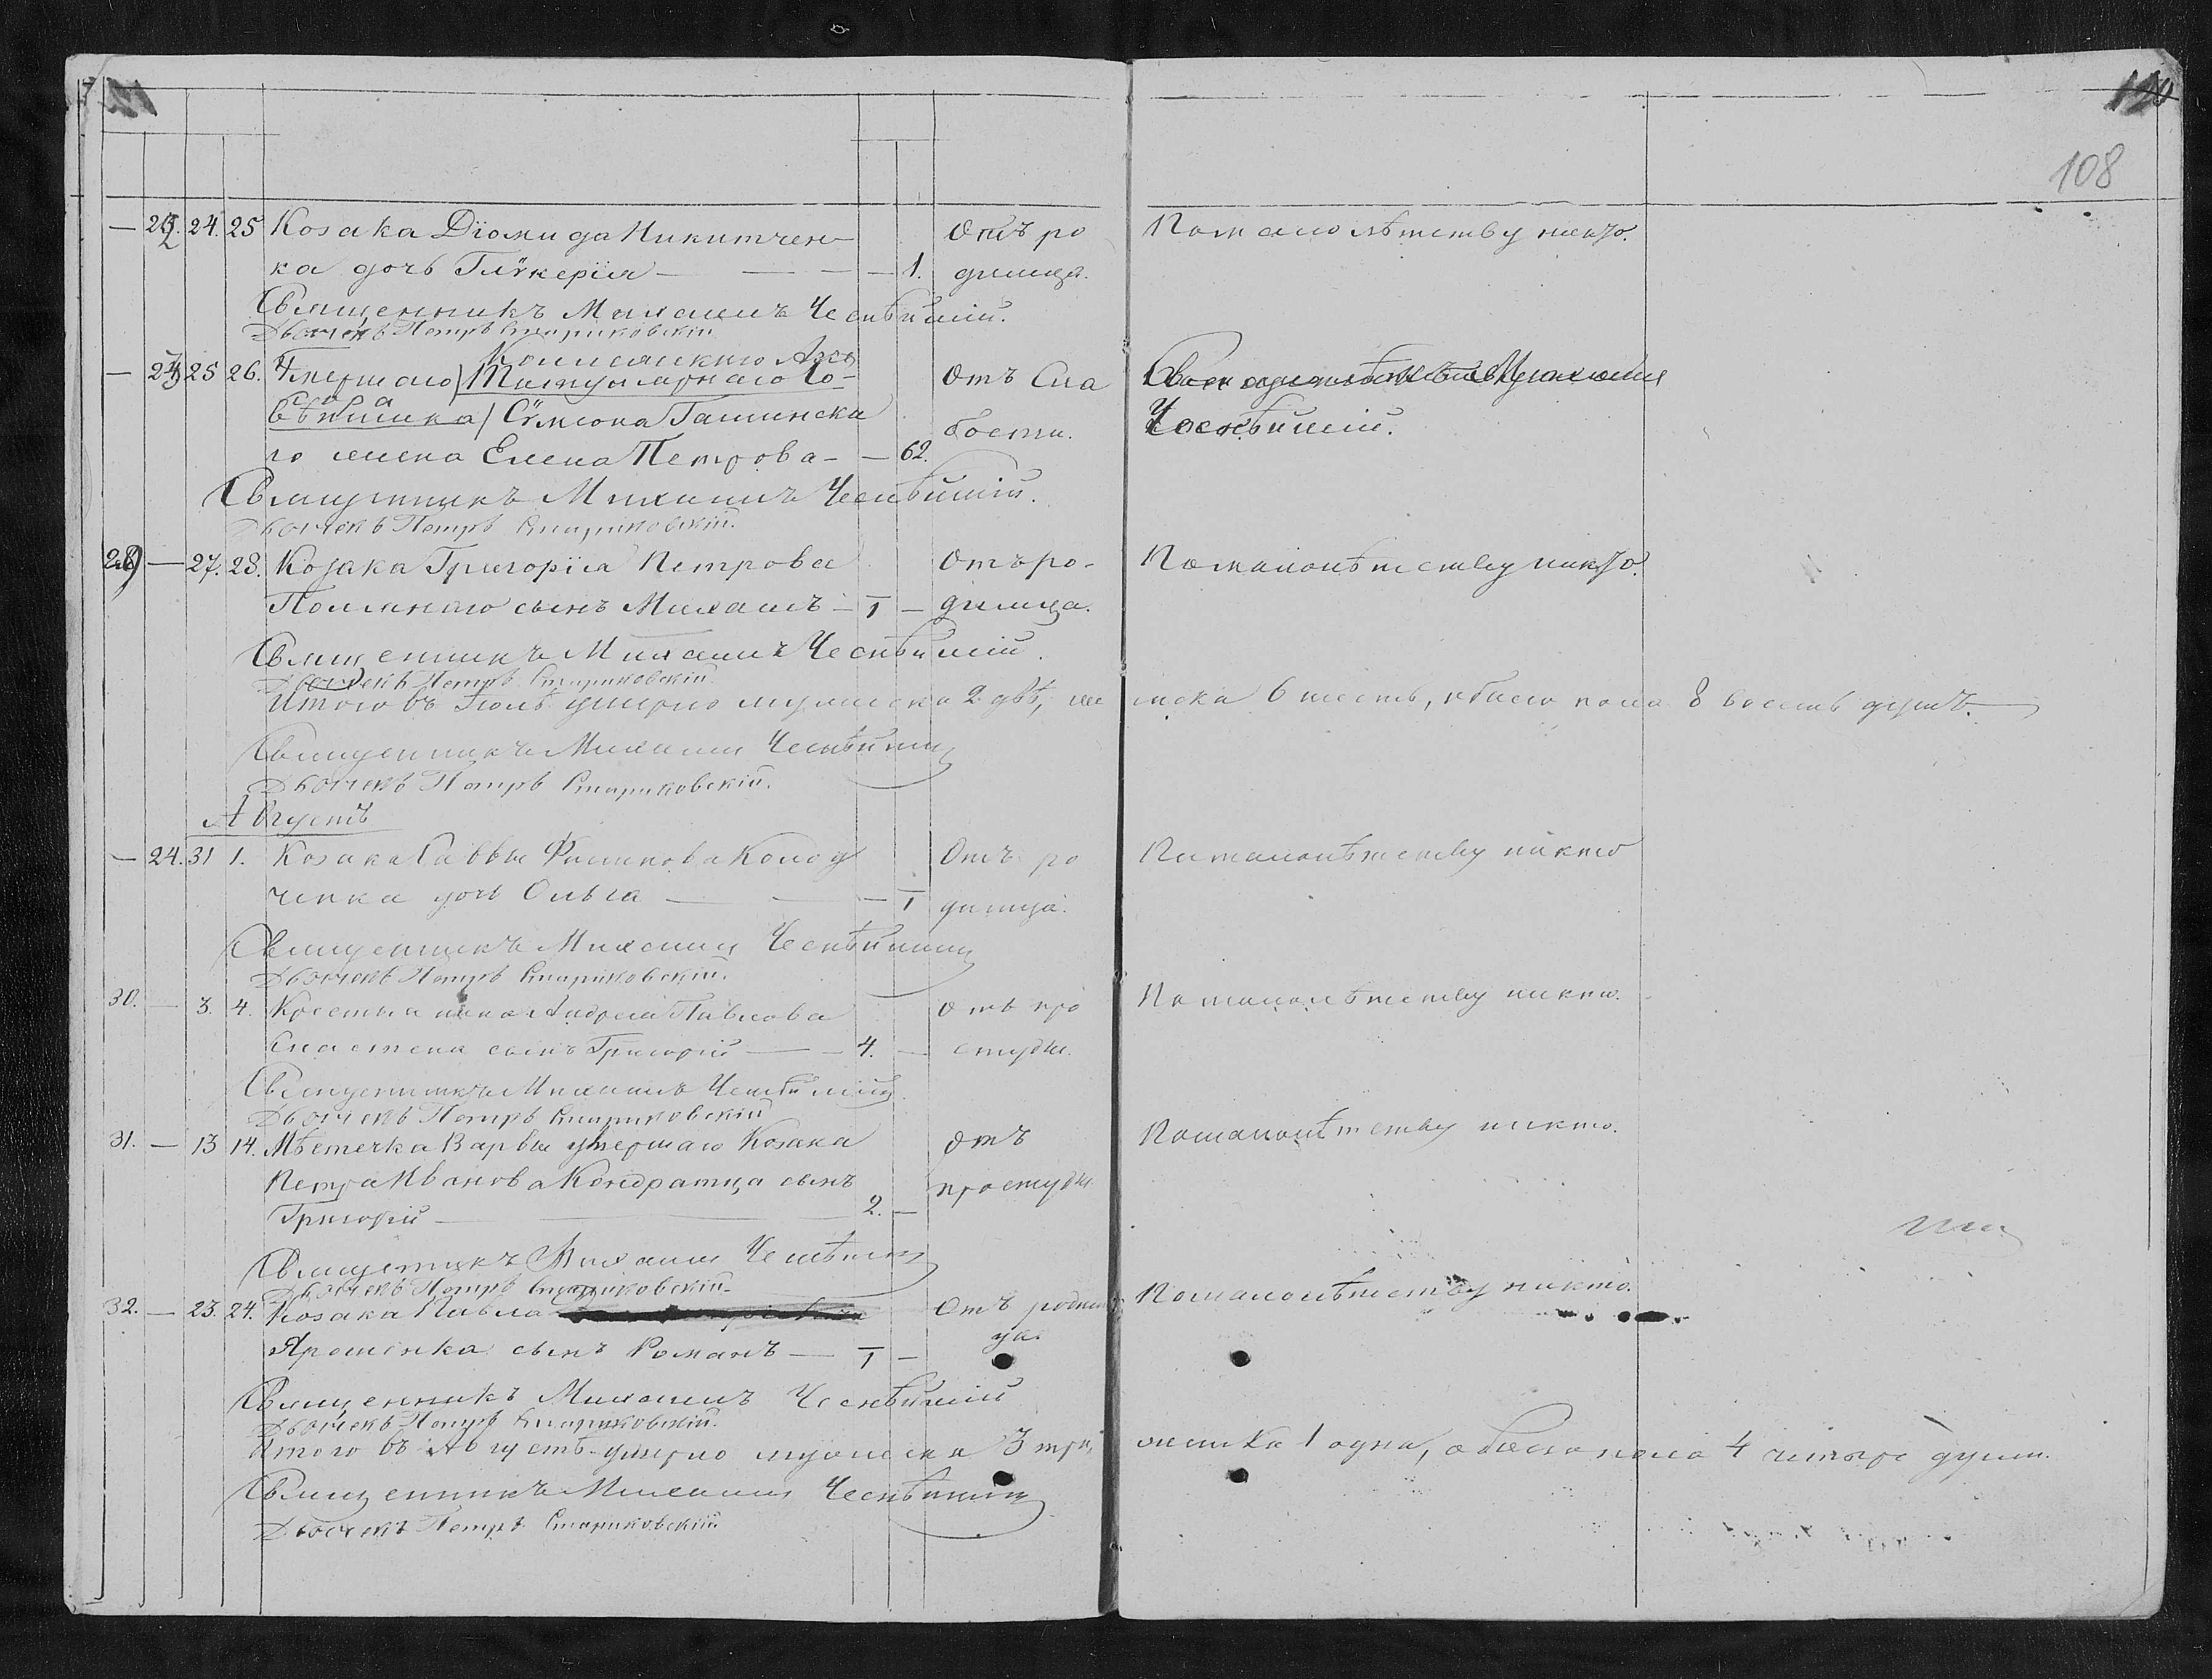 108
— 22. 24. 25 Козака Діомида Никитчен-
ка дочь Глѵкерія — — — — 1. Отъ родимца. По малолѣтству никто.
Священникъ Михаилъ
Дьячекъ Петръ Стариковскій
— 23 25 26. Умершаго /Титулярнаго Со- Коллежскаго Асес
сора
вѣтника/ Сѵмеона Гашинска
го жена Елена Петрова — — 62. Отъ Слабости.
Священникъ Михаилъ
Дьячекъ Петръ Стариковскій.
— 27. 28. Козака Григорія Петрова По малолѣтству никто.
сынъ Михаилъ — 1 — Отъ родимца.
Священникъ Михаилъ
Дьячекъ Петръ Стариковскій.
Итого въ Іюлѣ умерло мужеска 2 двѣ, женска 6 шесть, обоего пола 8 восемь душъ.
Священникъ Михаилъ
Дьячекъ Петръ Стариковскій.
Августъ
— 24. 31 1. Козака Саввы Филипова Колод
ченка дочь Ольга — — — 1 Отъ родимца. По малолѣтству никто
Священникъ Михаилъ
Дьячекъ Петръ Стариковскій.
30. — 3. 4. Крестьянина Андрея Павлова По малолѣтству никто.
сынъ Григорій — — 4. — Отъ простуды.
Священникъ Михаилъ
Дьячекъ Петръ Стариковскій
31. — 13 14. Мѣстечка Варвы умершаго Козака По малолѣтству никто.
Петра Иванова Кондратца сынъ
Григорій — 2. — Отъ простуды.
Священникъ Михаилъ
Дьячекъ Петръ Стариковскій.
32. — 23. 24. Козака Павла По малолѣтству никто.
Ярошенка сынъ Романъ — 1 — Отъ родимца.
Священникъ Михаилъ
Дьячекъ Петръ Стариковскій.
Итого въ Августѣ умерло мужеска 3 три, женска 1 одна, обоего пола 4 четыре души.
Священникъ Михаилъ
Дьячекъ Петръ Стариковскій